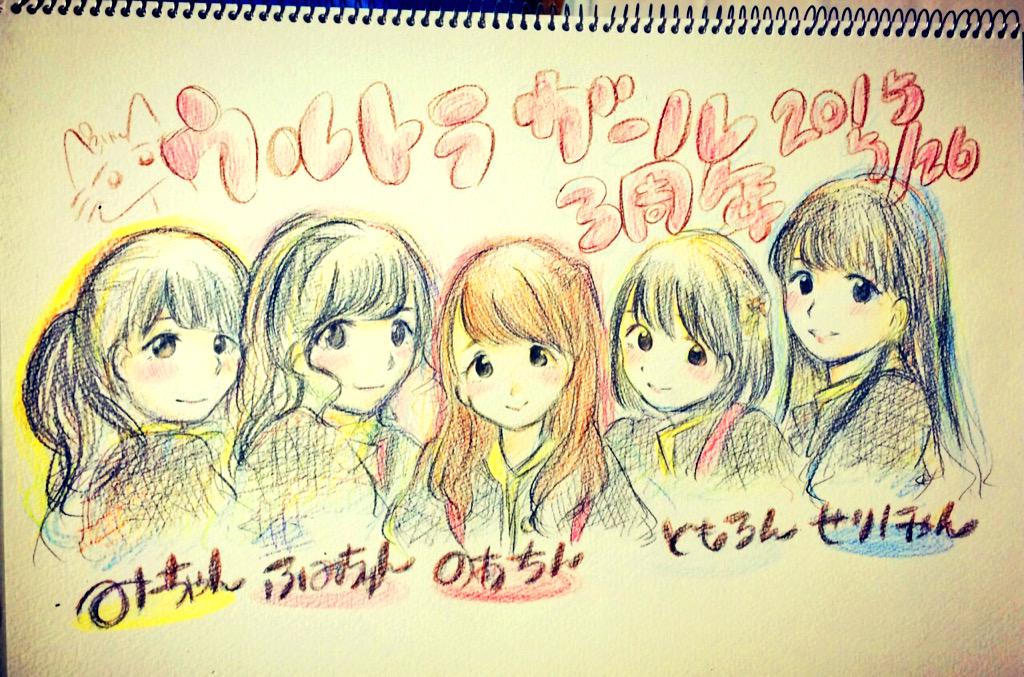 ウルトラ ガール 2015
3周年 5/26
みーちゃん ふうちゃん のあちん ともろん せりーちゃん